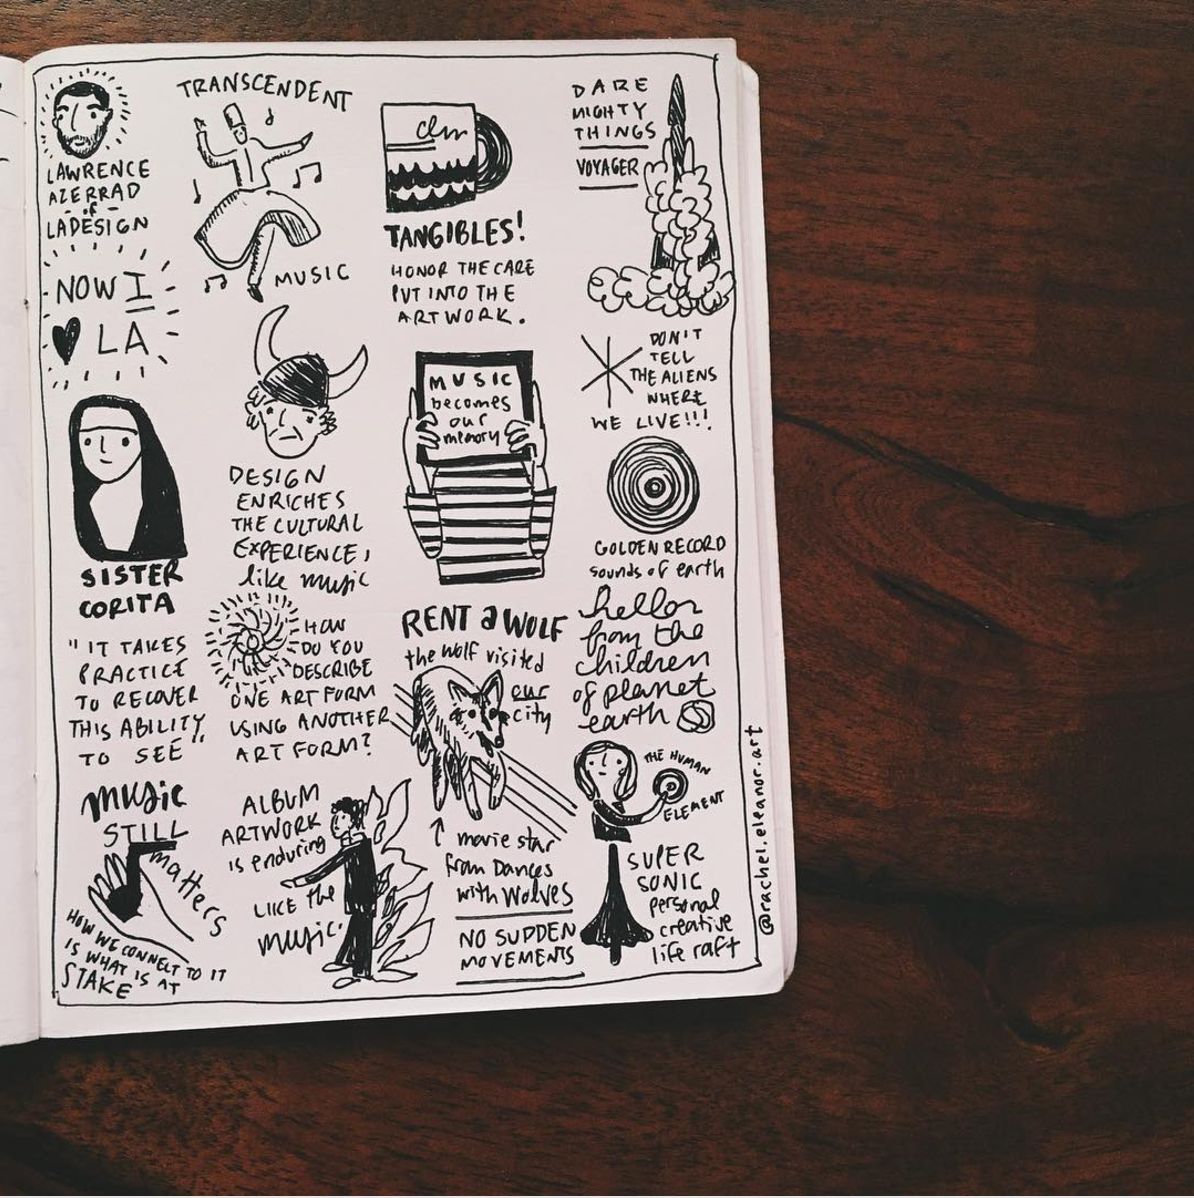 LAWRENCE
AZERRAD
- of -
LADESIGN
NOW I
LA
SISTER
CORITA
"IT TAKES
PRACTICE
TO RECOVER
THIS ABILITY
TO SEE"
MUSIC
STILL
matters
HOW WE CONNECT TO IT
IS WHAT IS AT
STAKE
TRANSCENDENT
MUSIC
DESIGN
ENRICHES
THE CULTURAL
EXPERIENCE,
like music
HOW
DO YOU
DESCRIBE
ONE ART FORM
USING ANOTHER
ART FORM?
ALBUM
ARTWORK
IS enduring
LIKE the
music.
TANGIBLES!
HONOR THE CARE
PUT INTO THE
ARTWORK.
MUSIC
becomes
our
memory
RENT a WOLF
the wolf visited
our
city
movie star
from Dances
with Wolves
NO SUDDEN
MOVEMENTS
DARE
MIGHTY
THINGS
VOYAGER
DON'T
TELL
THE ALIENS
WHERE
WE LIVE!!!
GOLDEN RECORD
sounds of earth
hello
from the
children
of planet
earth
THE HUMAN
ELEMENT
SUPER
SONIC
personal
creative
life raft
@rachel.eleanor.art